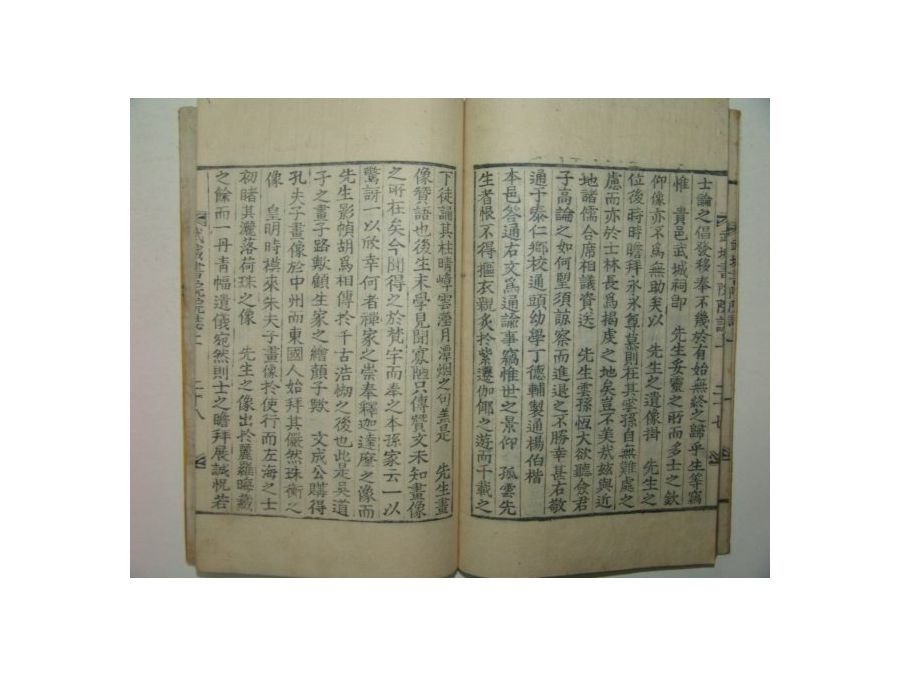 士論之倡發移奉不幾於有始無終之歸乎生等竊
惟 貴邑武城祠卽 先生妥靈之所而多士之欽
仰像亦不爲無助矣以 先生之遺像掛 先生之
位後時時瞻拜永永尊慕則在其雲孫自無難處之
慮而亦於士林長爲揭虔之地矣豈不美哉玆與近
地諸儒合席相議賫送 先生雲孫恆大欲聽僉君
子高論之如何望須諒察而進退之不勝幸甚右敬
通于泰仁鄕校通頭幼學丁德輔製通楊伯楷
本邑答通右文爲通諭事竊惟世之景仰 孤雲先
生者恨不得摳衣親炙於紫遷伽倻之遊而千載之
下徒誦其柱晴嶂雲瀅月潭烟之句 先生畫
像贊語也後生末學見聞寡陋只傳贊文未知畫像
之所在矣今聞得之於梵宇而奉之本孫家云一以
驚訝一以欣幸何者禪家之崇奉釋迦達摩之像而
先生影幀胡爲相傳於千古浩刼之後也此是吳道
子之畫子路歟顧生家之繪顔子歟 文成公購得
孔夫子畫像於中州而東國人始拜其儼然珠衡之
像 皇明時模來朱夫子畫像於使行而左海之士
初睹其灑落荷珠之像 先生之像出於麗羅晦藏
之餘而一丹靑幅遺儀宛然則士之瞻拜展誠怳若
武城書院院誌上 二十七
武城書院院誌上 二十八